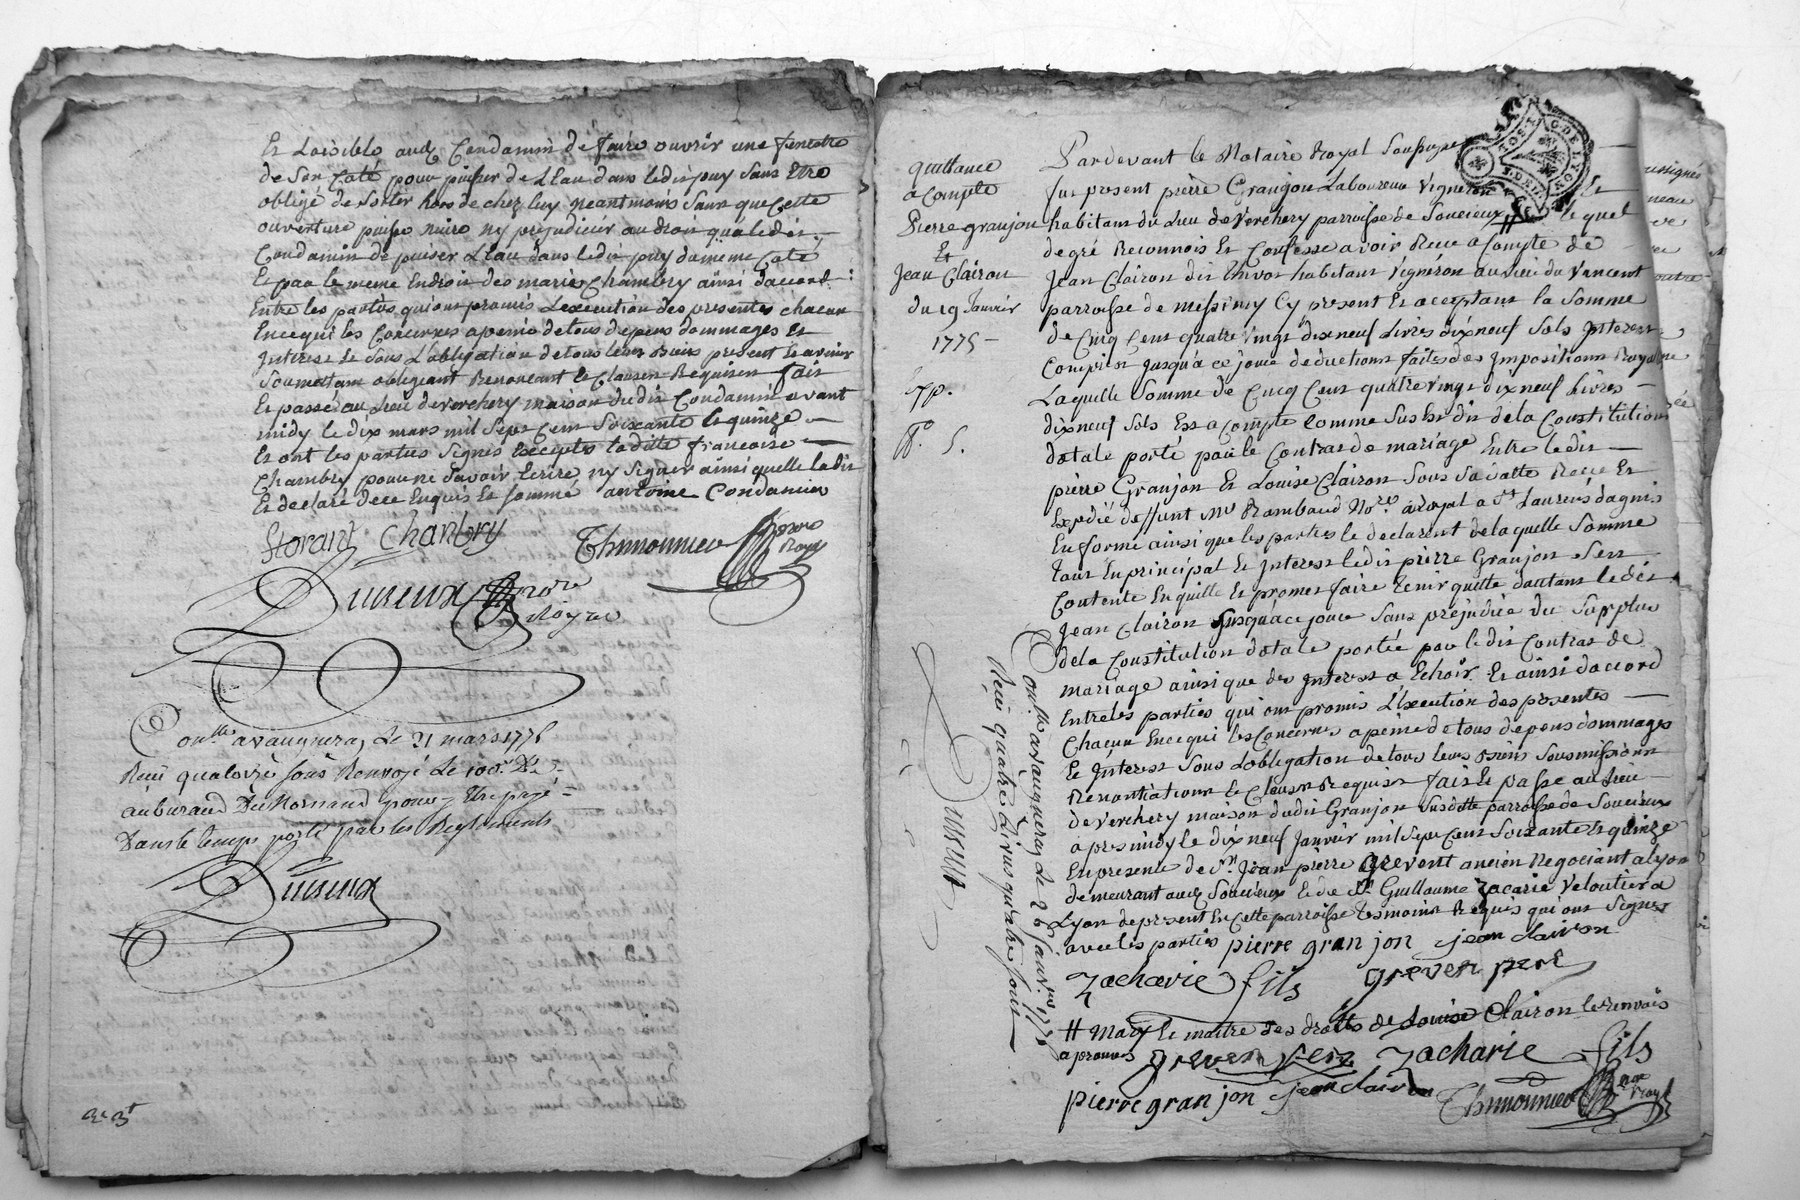 Et Loisible aud Condamin de faire ouvrir une fenetre
de Son Caté pour puiser de L'Eau dans ledit puy Sans Etre
obligé de Sortir hors de chez luy neantmoins Sans que Cette
ouverture puisse nuire ny prejudicier au droit qua ledit
Condamin de puiser L'Eau dans ledit puy du meme Caté
Et par le meme Endroit des mariés Chambry ainsi daccord
Entre les parties qui ont promis L'execution des presentes chacun
En ce qui les Concernes a peine de tous depens dommages Et
Interest Et Sous L'obligation de tous leurs Biens present Et avenir
Soumettant obligeant Renonceant Et Clauses Requises fait
Et passé au Lieu de Verchery maison dudit Condamin avant
midy le dix mars mil Sept Cent Soixante Et quinze
Et ont les parties Signés Exceptés laditte francoise
Chambry pour ne Savoir Ecrire ny Signer ainsi quelle la dit
Et declaré de ce Enquis Et Sommé antoine Condamin
florant Chanbry
Thimonnier
nore
Royal
Duneux
nore
Royal
Con.lle a vaugneray Le 21 mars 1775
Reçu quatorze Sous Renvoyé Le 100.e D.
au buraud De Mornand pour y Etre payé
Dans le temps porté par les Reglements
Duneux
quittance
a Compte
Pierre granjon
Et
Jean Clairon
du 19 Janvier
1775
Exp.
5.
Pardevant le Notaire Royal Soussigné
fut present pierre Granjon Laboureur Vigneron
habitant du Lieu de Verchery parroisse de Soucieux # lequel
de gré Reconnoit Et Confesse avoir Recu a Compte de
Jean Clairon dit habitant Vigneron au Lieu du
parroisse de messimy Cy present Et acceptant la Somme
de Cinq Cent quatre Vingt dix neuf Livres dix neuf Sols Interest
Compris Jusqu'à ce jour deductions faites des Impositions Royalle
Laquelle Somme de Cinq Cent quatre vingt dix neuf Livres
dix neuf Sols Est a Compte Comme Sus Est dit de la Constitution
dotale porté par le Contrat de mariage Entre ledit
pierre Granjon Et Louise Clairon Sous Sa datte Recu Et
Expedié deffunt M.e Rambaud No.re Royal a S.t Laurens dagnis
En forme ainsi que les parties le declarent de laquelle Somme
tant En principal Et Interest ledit pierre Granjon Sen
Contente En quitte Et promet faire tenir quitte dautant ledit
Jean Clairon Jusqu'à ce jour Sans prejudice du Surplus
de la Constitution dotale portée par ledit Contrat de
mariage ainsi que des Interest a Echoir. Et ainsi daccord
Entre les parties qui ont promis L'Execution des presentes
Chacun En ce qui les Concernes a peine de tous depens dommages
Et Interest Sous L'obligation de tous leurs Biens Soumissions
Renontiations Et Clauses Requises fait Et passé au Lieu
de Verchery maison dudit Granjon Susditte parroisse de Soucieux
apres midy le dix neuf Janvier mil Sept Cent Soixante Et quinze
En presence de S.r Jean pierre grevent ancien Negociant a Lyon
demeurant aud Soucieux Et de S.r Guillaume Zacarie Veloutier a
Lyon de present En Cette parroisse temoins Requis qui ont Signes
avec les parties pierre gran jon jean clairon
Zacharie fils greven pere
# Mary Et maitre des droits de Louise Clairon le renvois
aprouvé greven pere Zacharie fils
pierre gran jon jean clairon
Thimonnier
nore
Royal
Con.lle a vaugneray Le 26 Janv.er 1775
Reçu quatre Livres quatre Sous
Duneux